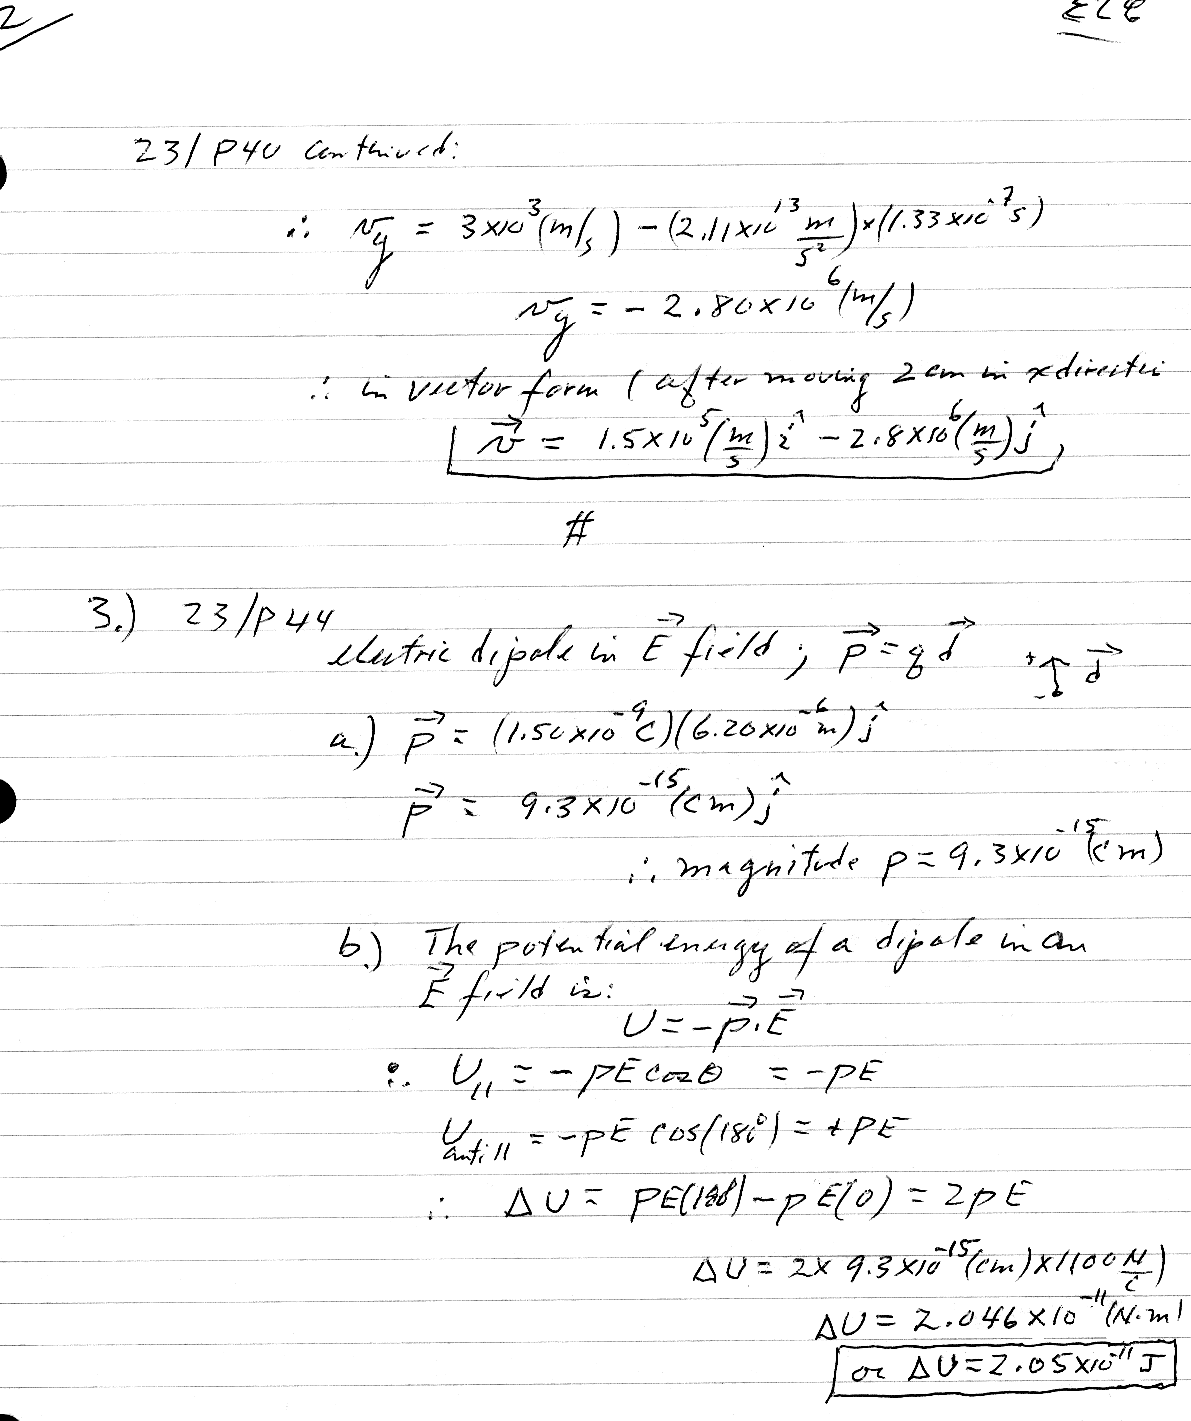 2
ELE
23/P40 continued:
∴ v_y = 3×10^3 (m/s) - (2.11×10^13 m/s^2)×(1.33×10^-7 s)
v_y = - 2.80×10^6 (m/s)
∴ in vector form (after moving 2cm in x directi
v⃗ = 1.5×10^5 (m/s) î - 2.8×10^6 (m/s) ĵ,
#
3.) 23/P44
electric dipole in E⃗ field; p⃗ = q d⃗ + - d⃗
a.) p⃗ = (1.50×10^-9 C)(6.20×10^-6 m) ĵ
p⃗ = 9.3×10^-15 (Cm) ĵ
∴ magnitude p = 9.3×10^-15 (Cm)
b.) The potential energy of a dipole in an
E⃗ field is:
U = -p⃗·E⃗
∴ U_11 = -pE cosθ = -pE
U_anti11 = -pE cos(180°) = +PE
∴ ΔU = PE(180) - pE(0) = 2pE
ΔU = 2× 9.3×10^-15 (cm)×1100 N/C)
ΔU = 2.046×10^-11 (N·m)
or ΔU = 2.05×10^-11 J